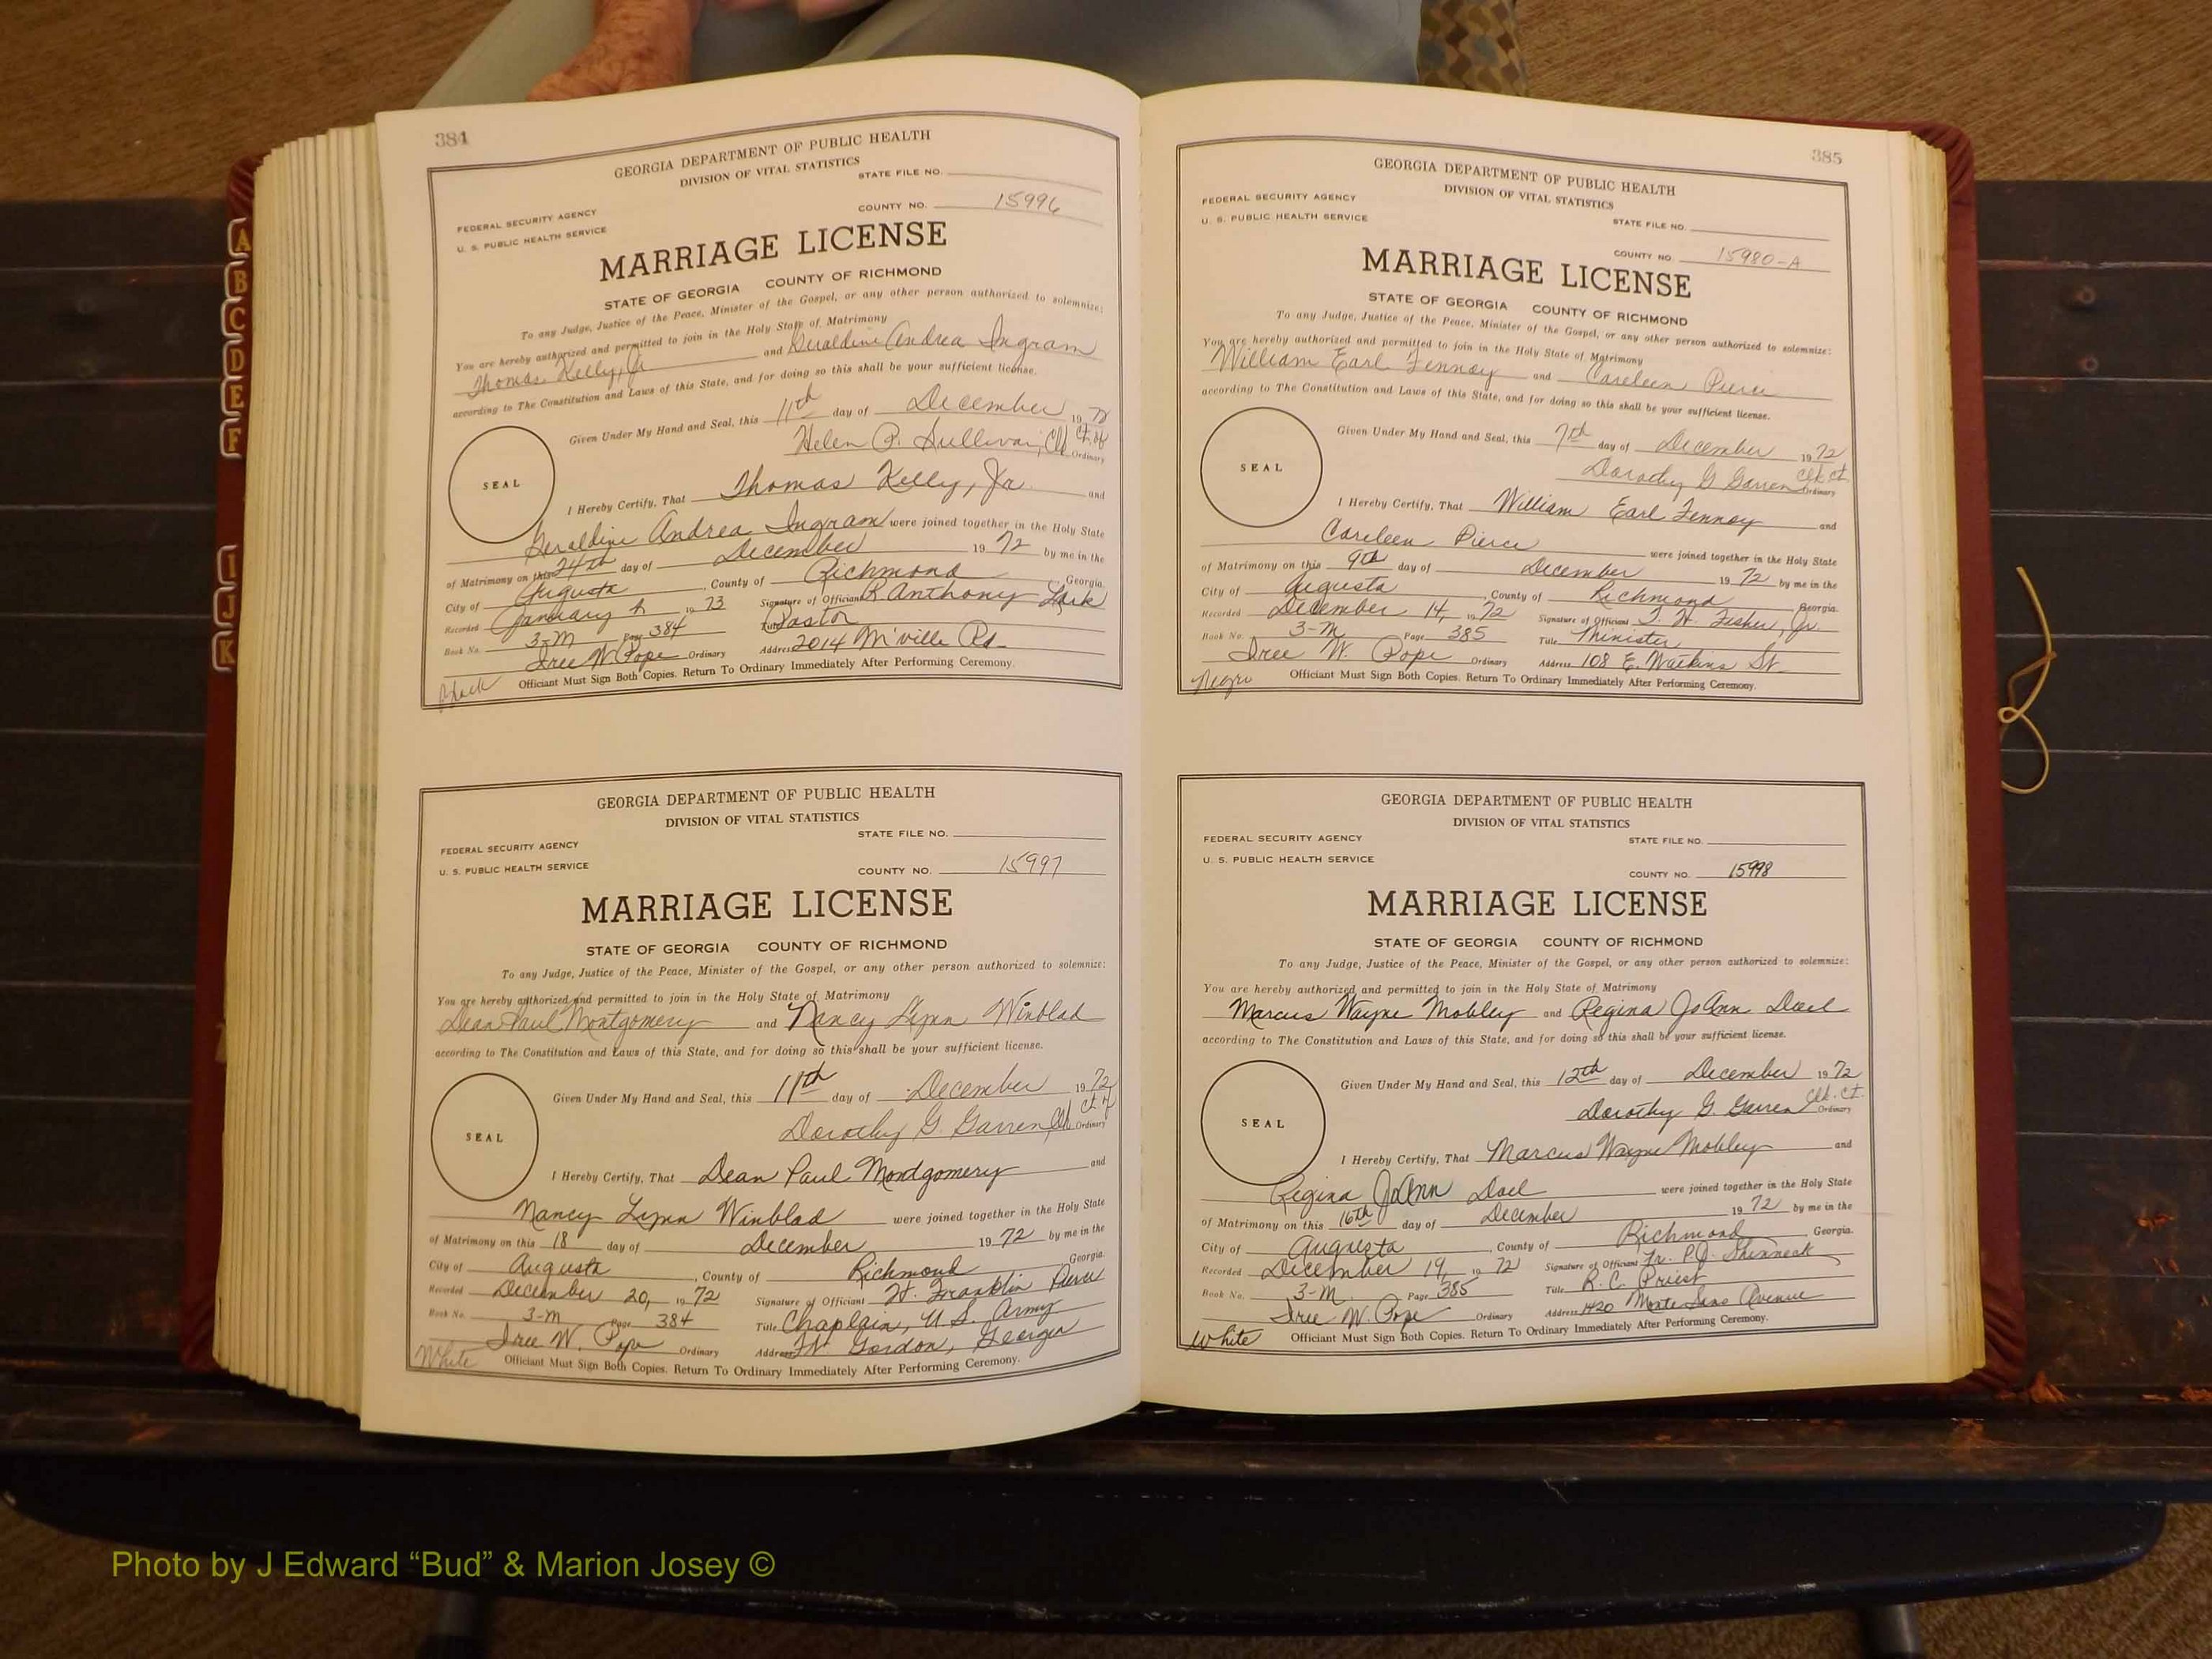 A
B
C
D
E
F
I
J
K
384
GEORGIA DEPARTMENT OF PUBLIC HEALTH
DIVISION OF VITAL STATISTICS
STATE FILE NO.
FEDERAL SECURITY AGENCY
U. S. PUBLIC HEALTH SERVICE
COUNTY NO. 15996
MARRIAGE LICENSE
STATE OF GEORGIA COUNTY OF RICHMOND
To any Judge, Justice of the Peace, Minister of the Gospel, or any other person authorized to solemnize:
You are hereby authorized and permitted to join in the Holy State of Matrimony
Thomas Kelly, Jr. and Geraldine Andrea Ingram
according to The Constitution and Laws of this State, and for doing so this shall be your sufficient license.
Given Under My Hand and Seal, this 11th day of December 1972
Helen P. Sullivan, Clk Ct. of Ordinary
SEAL
I Hereby Certify, That Thomas Kelly, Jr. and
Geraldine Andrea Ingram were joined together in the Holy State
of Matrimony on this 24th day of December 1972 by me in the
City of Augusta, County of Richmond Georgia.
Recorded January 1973 Signature of Official K Anthony Lark
Book No. 3-M Page 384 Title Pastor
Iree W. Pope Ordinary Address 2014 M'ville Rd.
Black Officiant Must Sign Both Copies. Return To Ordinary Immediately After Performing Ceremony.
GEORGIA DEPARTMENT OF PUBLIC HEALTH
DIVISION OF VITAL STATISTICS
STATE FILE NO.
FEDERAL SECURITY AGENCY
U. S. PUBLIC HEALTH SERVICE
COUNTY NO. 15997
MARRIAGE LICENSE
STATE OF GEORGIA COUNTY OF RICHMOND
To any Judge, Justice of the Peace, Minister of the Gospel, or any other person authorized to solemnize:
You are hereby authorized and permitted to join in the Holy State of Matrimony
Dean Paul Montgomery and Nancy Lynn Winblad
according to The Constitution and Laws of this State, and for doing so this shall be your sufficient license.
Given Under My Hand and Seal, this 11th day of December 1972
Dorothy G. Garren Clk Ct. of Ordinary
SEAL
I Hereby Certify, That Dean Paul Montgomery and
Nancy Lynn Winblad were joined together in the Holy State
of Matrimony on this 18 day of December 1972 by me in the
City of Augusta, County of Richmond Georgia.
Recorded December 20, 1972 Signature of Official H. Franklin Pierce
Book No. 3-M Page 384 Title Chaplain, U.S. Army
Iree W. Pope Ordinary Address Ft Gordon, Georgia
White Officiant Must Sign Both Copies. Return To Ordinary Immediately After Performing Ceremony.
385
GEORGIA DEPARTMENT OF PUBLIC HEALTH
DIVISION OF VITAL STATISTICS
FEDERAL SECURITY AGENCY
U. S. PUBLIC HEALTH SERVICE
STATE FILE NO.
COUNTY NO. 15980-A
MARRIAGE LICENSE
STATE OF GEORGIA COUNTY OF RICHMOND
To any Judge, Justice of the Peace, Minister of the Gospel, or any other person authorized to solemnize:
You are hereby authorized and permitted to join in the Holy State of Matrimony
William Earl Fennoy and Careleen Pierce
according to The Constitution and Laws of this State, and for doing so this shall be your sufficient license.
Given Under My Hand and Seal, this 7th day of December 1972
Dorothy G Garren Clk Ct. Ordinary
SEAL
I Hereby Certify, That William Earl Fennoy and
Careleen Pierce were joined together in the Holy State
of Matrimony on this 9th day of December 1972 by me in the
City of Augusta, County of Richmond Georgia.
Recorded December 14, 1972 Signature of Official T. H. Fisher, Jr.
Book No. 3-M Page 385 Title Minister
Iree W. Pope Ordinary Address 108 E. Watkins St
Negro Officiant Must Sign Both Copies. Return To Ordinary Immediately After Performing Ceremony.
GEORGIA DEPARTMENT OF PUBLIC HEALTH
DIVISION OF VITAL STATISTICS
FEDERAL SECURITY AGENCY
STATE FILE NO.
U. S. PUBLIC HEALTH SERVICE
COUNTY NO. 15998
MARRIAGE LICENSE
STATE OF GEORGIA COUNTY OF RICHMOND
To any Judge, Justice of the Peace, Minister of the Gospel, or any other person authorized to solemnize:
You are hereby authorized and permitted to join in the Holy State of Matrimony
Marcus Wayne Mobley and Regina JoAnn Dael
according to The Constitution and Laws of this State, and for doing so this shall be your sufficient license.
Given Under My Hand and Seal, this 12th day of December 1972
Dorothy G. Garren Clk. Ct. Ordinary
SEAL
I Hereby Certify, That Marcus Wayne Mobley and
Regina JoAnn Dael were joined together in the Holy State
of Matrimony on this 16th day of December 1972 by me in the
City of Augusta, County of Richmond Georgia.
Recorded December 19, 1972 Signature of Official Fr. P.J. Shinnick
Book No. 3-M Page 385 Title R. C. Priest
Iree W. Pope Ordinary Address 1420 Monte Sano Avenue
White Officiant Must Sign Both Copies. Return To Ordinary Immediately After Performing Ceremony.
Photo by J Edward “Bud” & Marion Josey ©